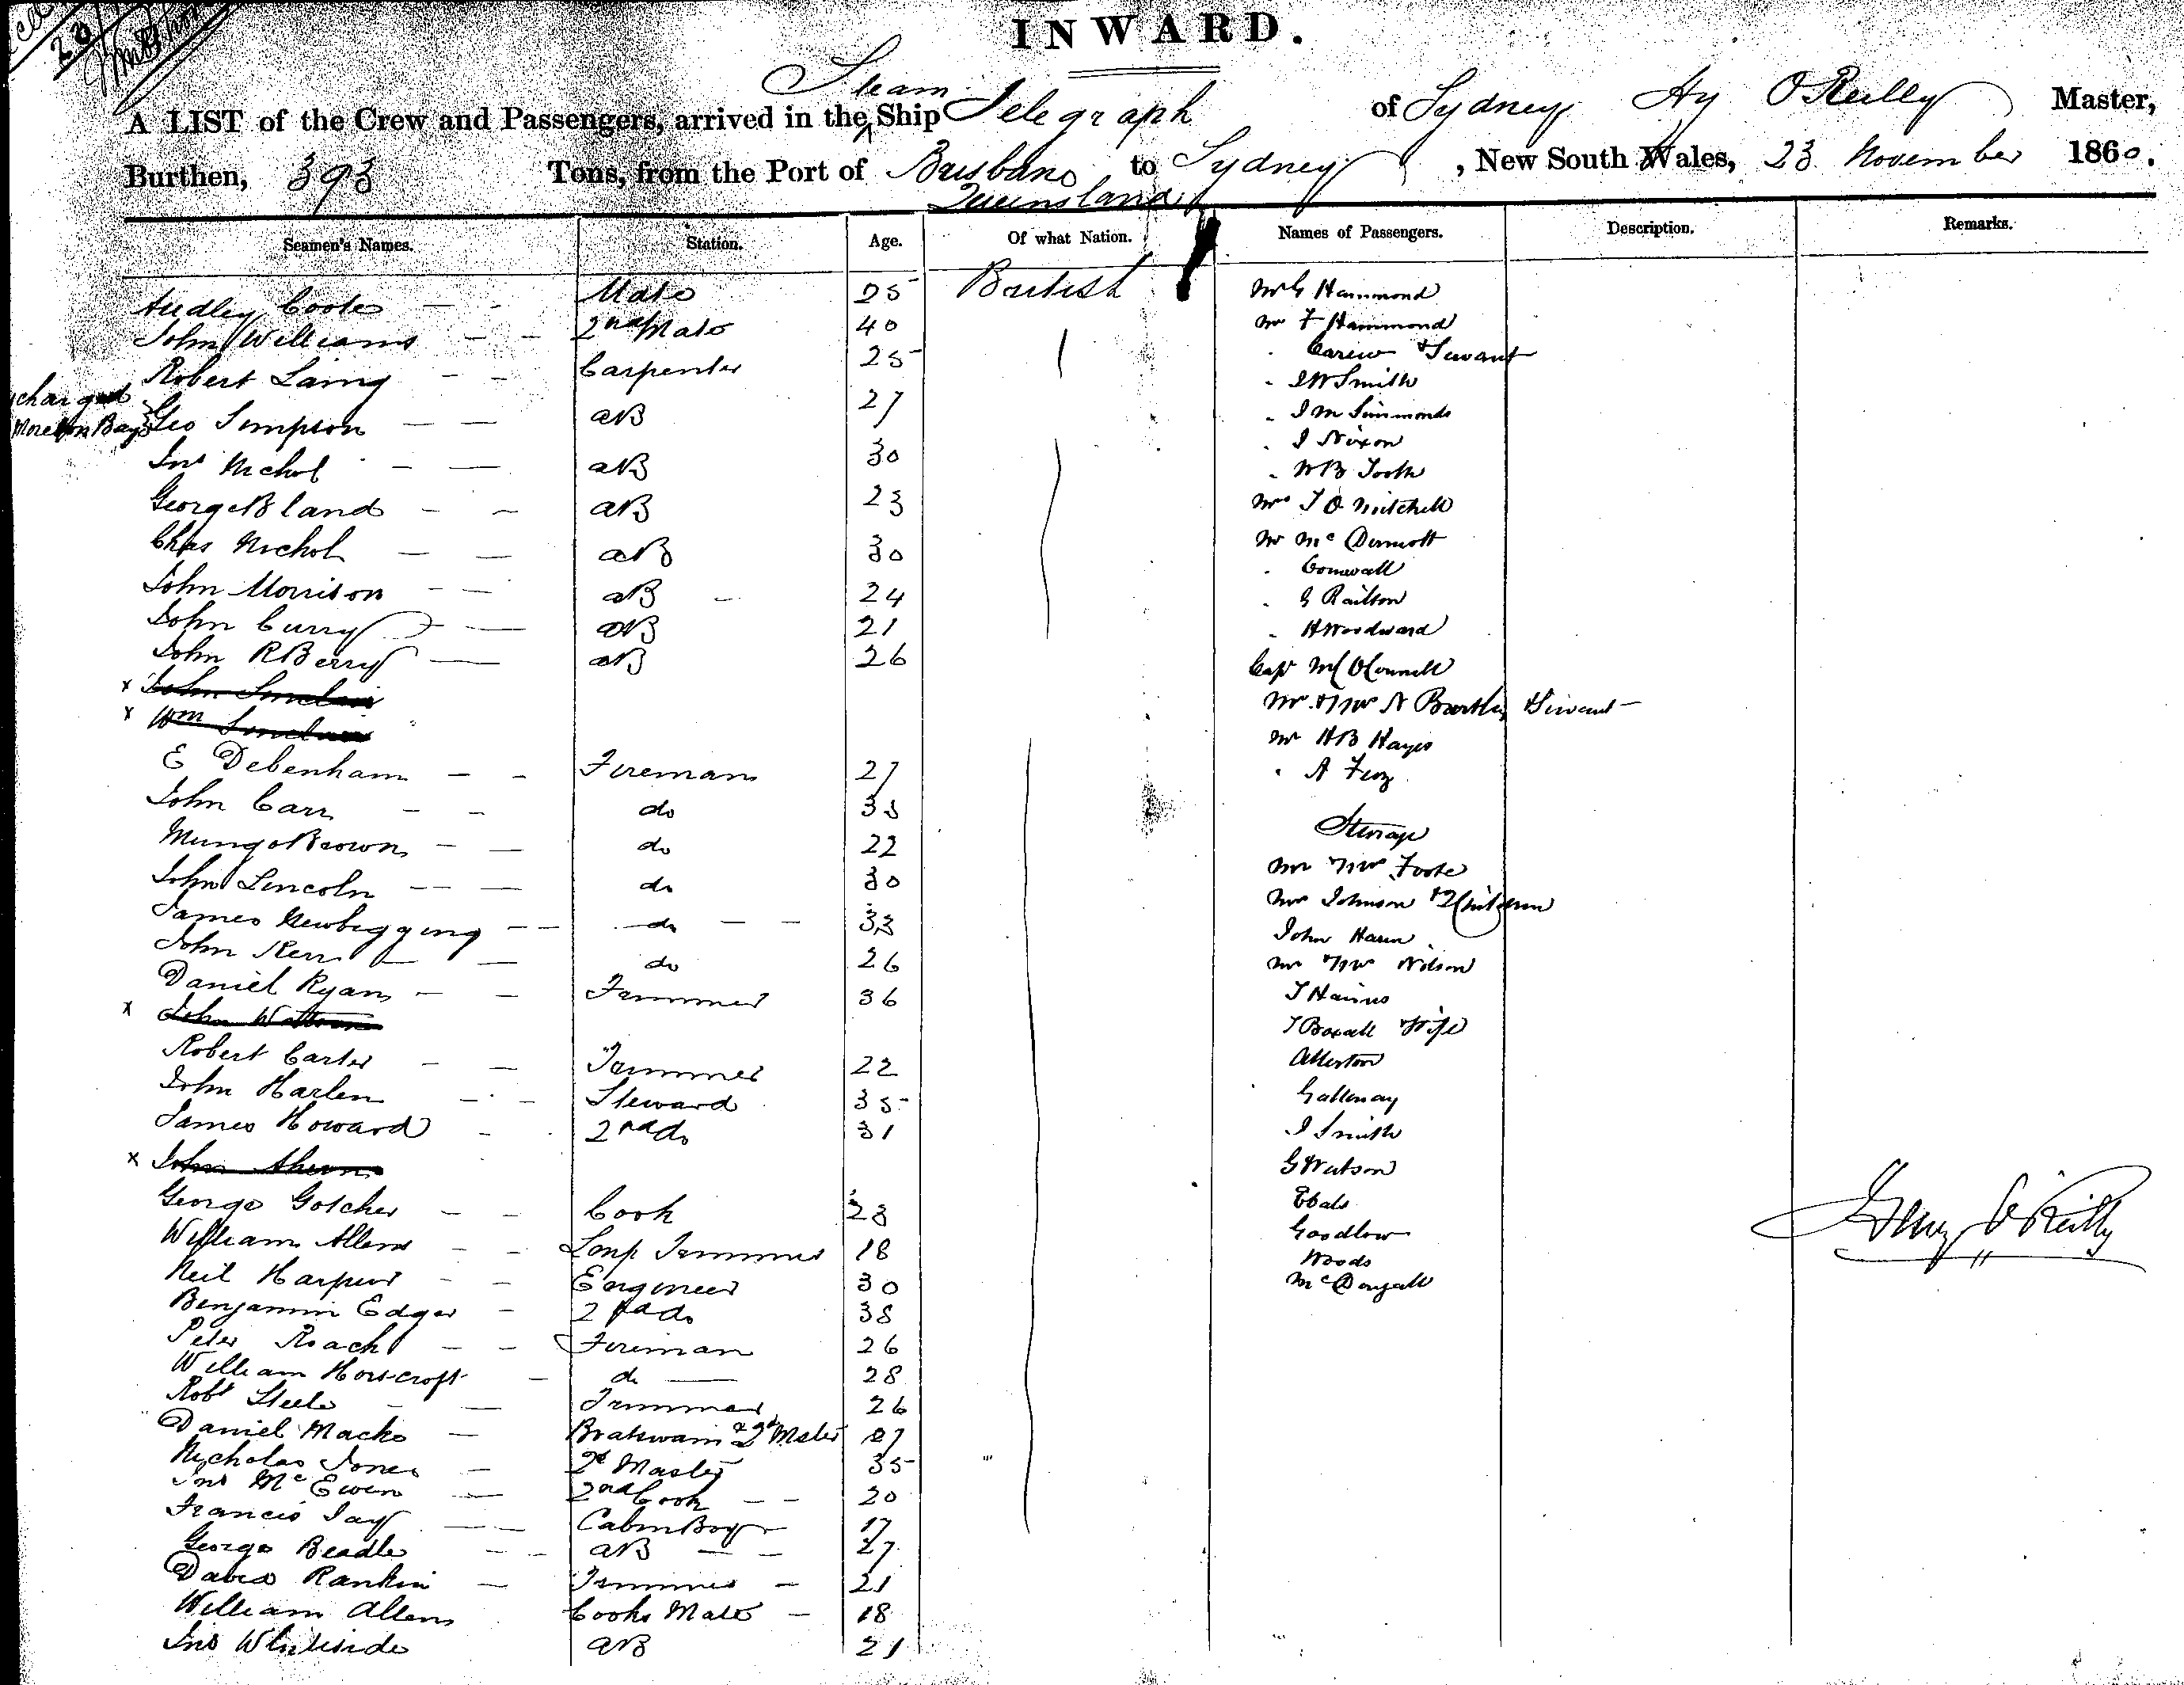 INWARD.
Steam
A LIST of the Crew and Passengers, arrived in the ^ Ship Telegraph of Sydney Hy O'Reilly Master,
Burthen, 393 Tons, from the Port of Brisbane to Sydney, New South Wales, 23 November 1860.
Queensland
Seamen's Names. Station. Age. Of what Nation. Names of Passengers. Description. Remarks.
Audley Coote Mate 25 British
John Williams 2nd Mate 40
Robert Laing Carpenter 25
charged
Moreton Bay
Geo Simpson AB 27
Jno Nichol AB 30
George Bland AB 23
Chas Nichol AB 30
John Morrison AB 24
John Curry AB 21
John R Berry AB 26
x John Sinclair
x Wm Sinclair
E Debenham Fireman 27
John Carr do 35
Mungo Brown do 22
John Lincoln do 30
James Newbigging do 33
John Kerr do 26
Daniel Ryan Trimmer 36
x John
Robert Carter Trimmer 22
John Harlen Steward 35
James Howard 2nd do 31
x John Ahern
George Gotcher Cook 23
William Allen Lamp Trimmer 18
Neil Harper Engineer 30
Benjamin Edgar 2nd do 38
Peter Roach Fireman 26
William Horscroft do 28
Robt Steele Trimmer 26
Daniel Mackie Boatswain & 2d Master 27
Nicholas Jones 2d Master 35
Jno McEwen 2nd Cook 20
Francis Jay Cabin Boy 17
George Beadle AB 27
David Rankin Trimmer 21
William Allen Cooks Mate 18
Jno Whiteside AB 21
Mr G Hammond
Mr F Hammond
" Carew & Servant
" J W Smith
" J M Simmonds
" J Nixon
" W B Tooth
Mrs T O Mitchell
Mr McDermott
" Cornwall
" G Railton
" H Woodward
Capt M C O'Connell
Mr & Mrs N Bartley & Servant
Mr H B Hayes
" A Feez
Steerage
Mr & Mrs Foote
Mrs Johnson & 2 Children
John Haren
Mr & Mrs Wilson
T Haines
T Boxall & Wife
Allerton
Galloway
J Smith
G Watson
Goodlow
Woods
McDougall
Henry O'Reilly